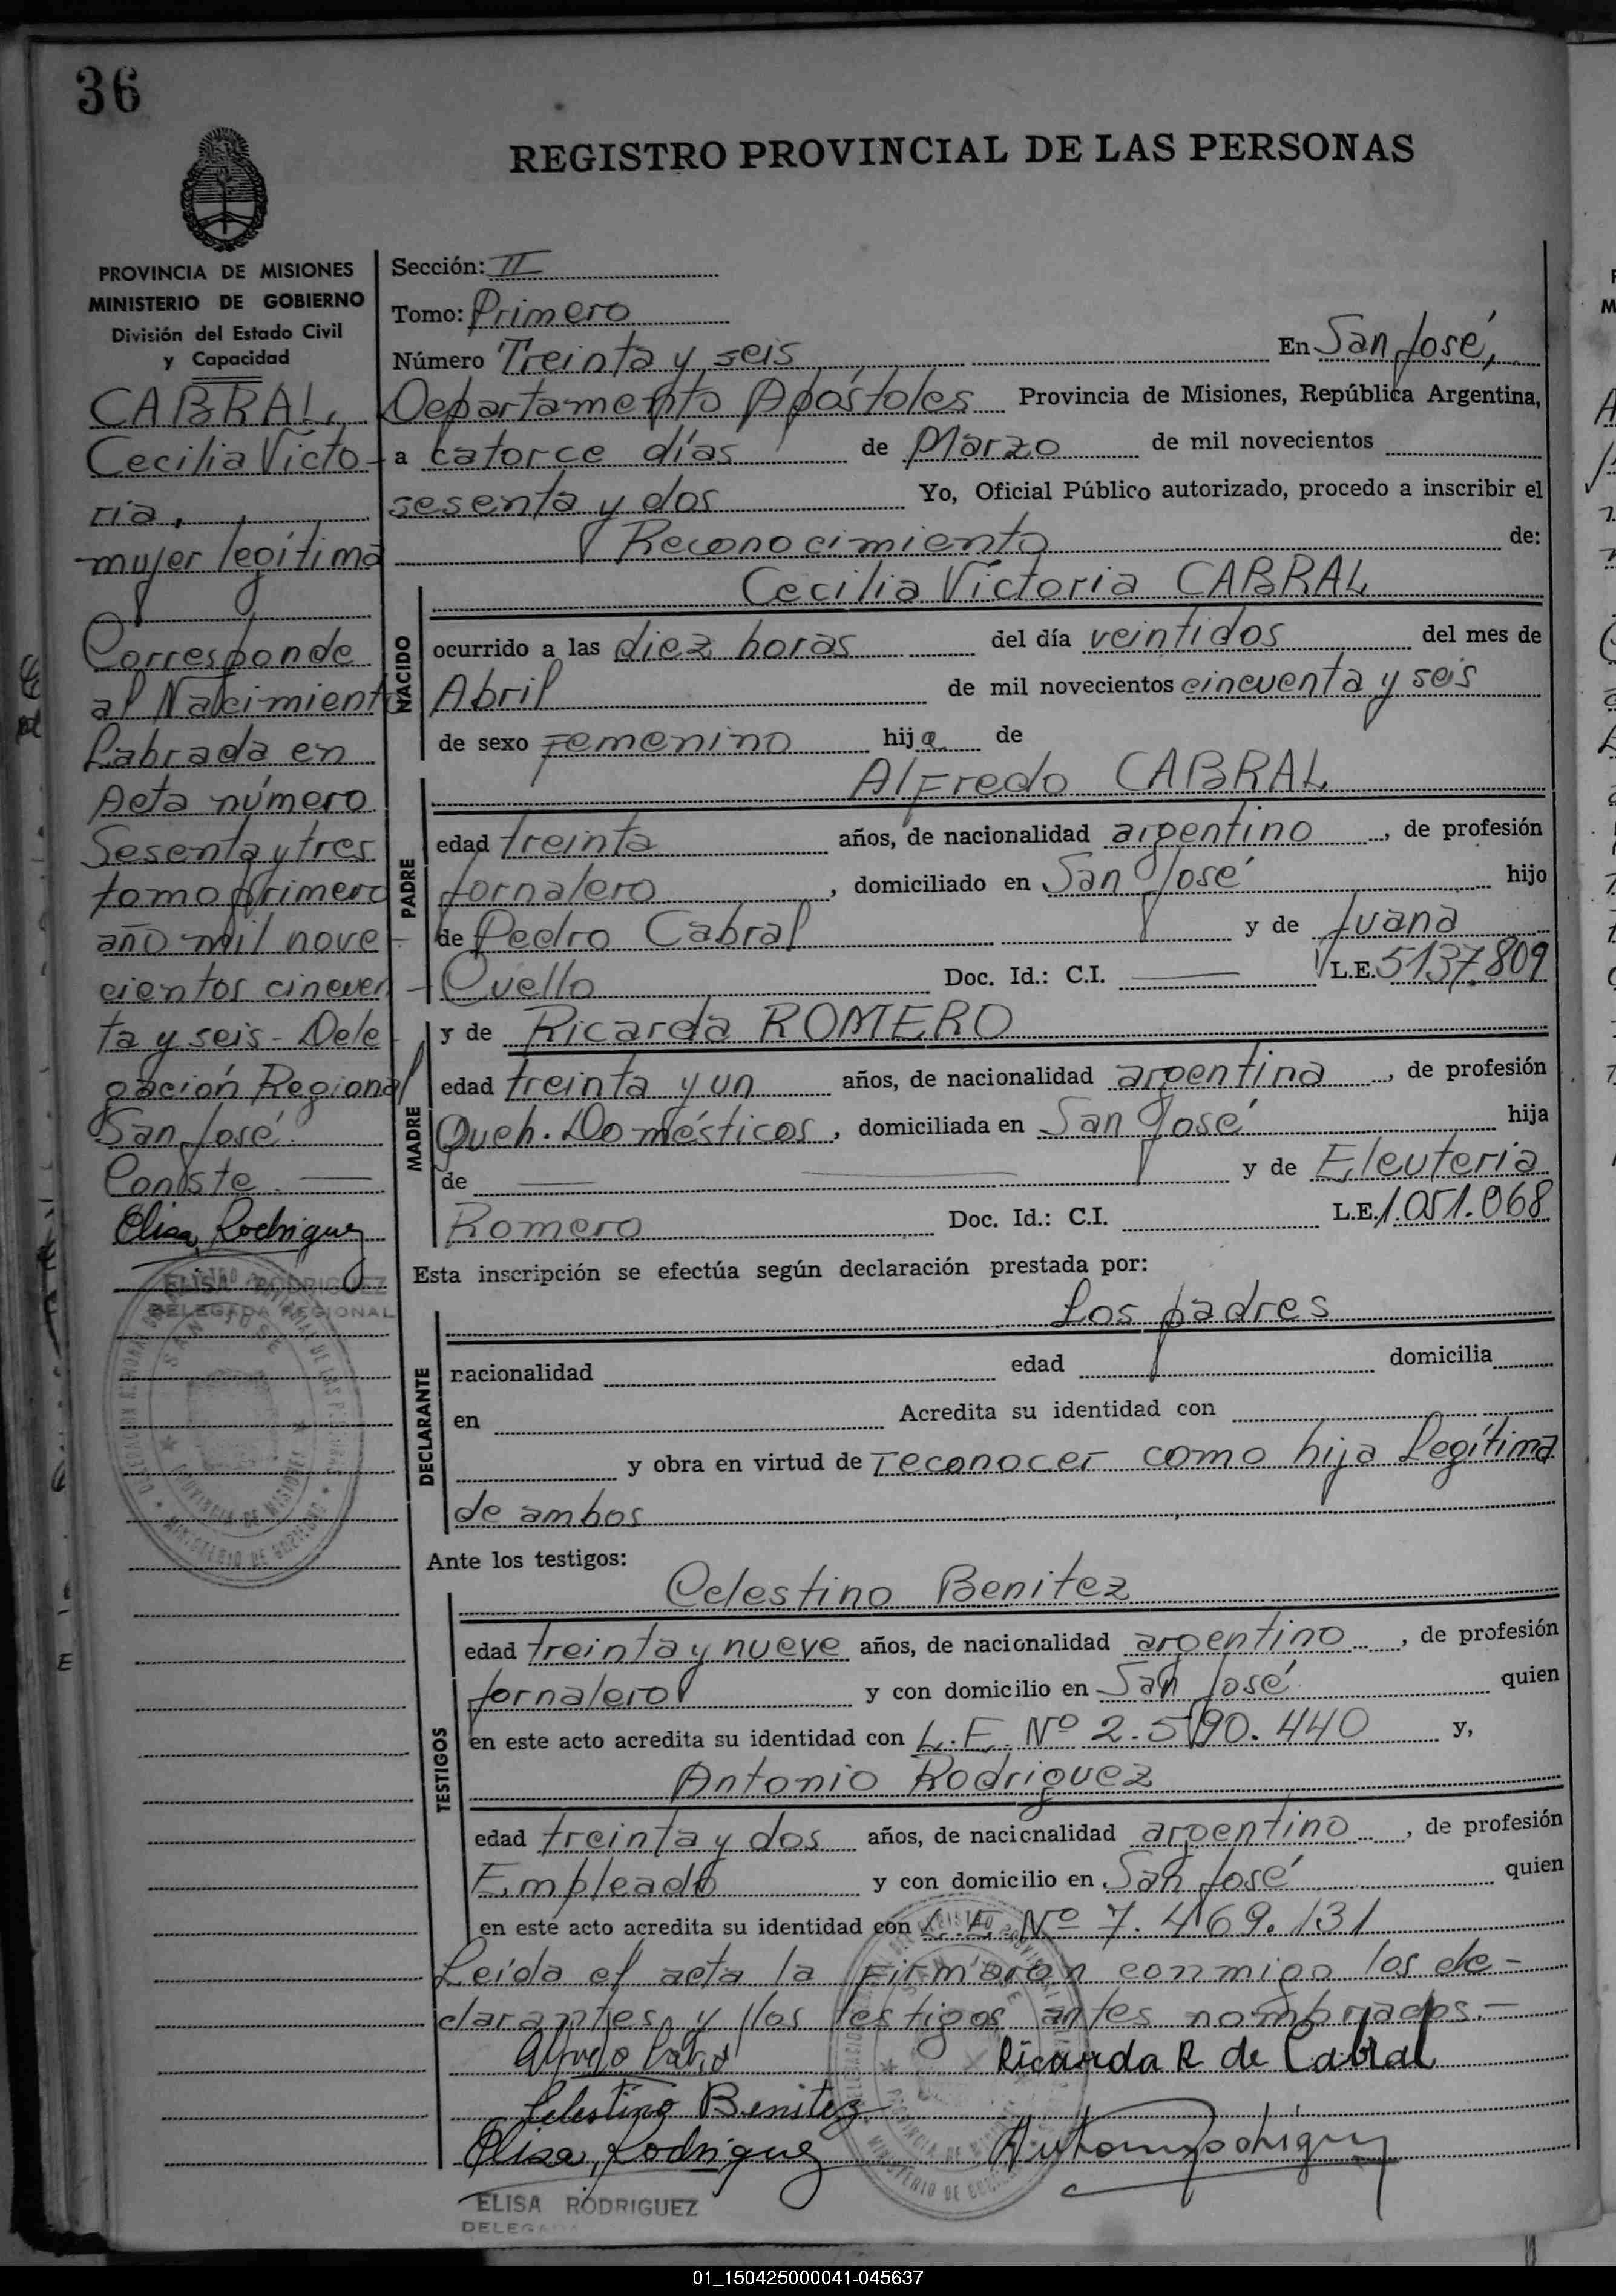 36
REGISTRO PROVINCIAL DE LAS PERSONAS
PROVINCIA DE MISIONES
MINISTERIO DE GOBIERNO
División del Estado Civil
y Capacidad
CABRAL,
Cecilia Victo-
ria,
mujer legítima
Corresponde
al Nacimiento
Labrada en
Acta número
Sesenta y tres
tomo primero
año mil nove-
cientos cincuen-
ta y seis - Dele
gación Regional
San José.
Conste
Elisa Rodriguez
ELISA RODRIGUEZ
DELEGADA REGIONAL
Sección: II
Tomo: Primero
Número Treinta y seis En San José,
Departamento Apóstoles Provincia de Misiones, República Argentina,
a catorce días de Marzo de mil novecientos
sesenta y dos Yo, Oficial Público autorizado, procedo a inscribir el
Reconocimiento de:
Cecilia Victoria CABRAL
NACIDO
ocurrido a las diez horas del día veintidos del mes de
Abril de mil novecientos cincuenta y seis
de sexo Femenino hija de
Alfredo CABRAL
PADRE
edad treinta años, de nacionalidad argentino, de profesión
Jornalero, domiciliado en San José hijo
de Pedro Cabral y de Juana
Cuello Doc. Id.: C.I. L.E. 5137.809
MADRE
y de Ricarda ROMERO
edad treinta y un años, de nacionalidad argentina, de profesión
Queh. Domésticos, domiciliada en San José hija
de y de Eleuteria
Romero Doc. Id.: C.I. L.E. 1.051.068
Esta inscripción se efectúa según declaración prestada por:
Los padres
DECLARANTE
nacionalidad edad domicilia
en Acredita su identidad con
y obra en virtud de reconocer como hija Legítima
de ambos
Ante los testigos:
Celestino Benitez
TESTIGOS
edad treinta y nueve años, de nacionalidad argentino, de profesión
Jornalero y con domicilio en San José quien
en este acto acredita su identidad con L.E. Nº 2.590.440 y,
Antonio Rodriguez
edad treinta y dos años, de nacionalidad argentino, de profesión
Empleado y con domicilio en San José quien
en este acto acredita su identidad con L.E. Nº 7.469.131
Leída el acta la Firmaron conmigo los de-
clarantes y los testigos antes nombrados.-
Alfredo Cabral Ricarda R de Cabral
Celestino Benitez
Elisa Rodriguez Antonio Rodriguez
ELISA RODRIGUEZ
DELEGADA
01_150425000041-045637